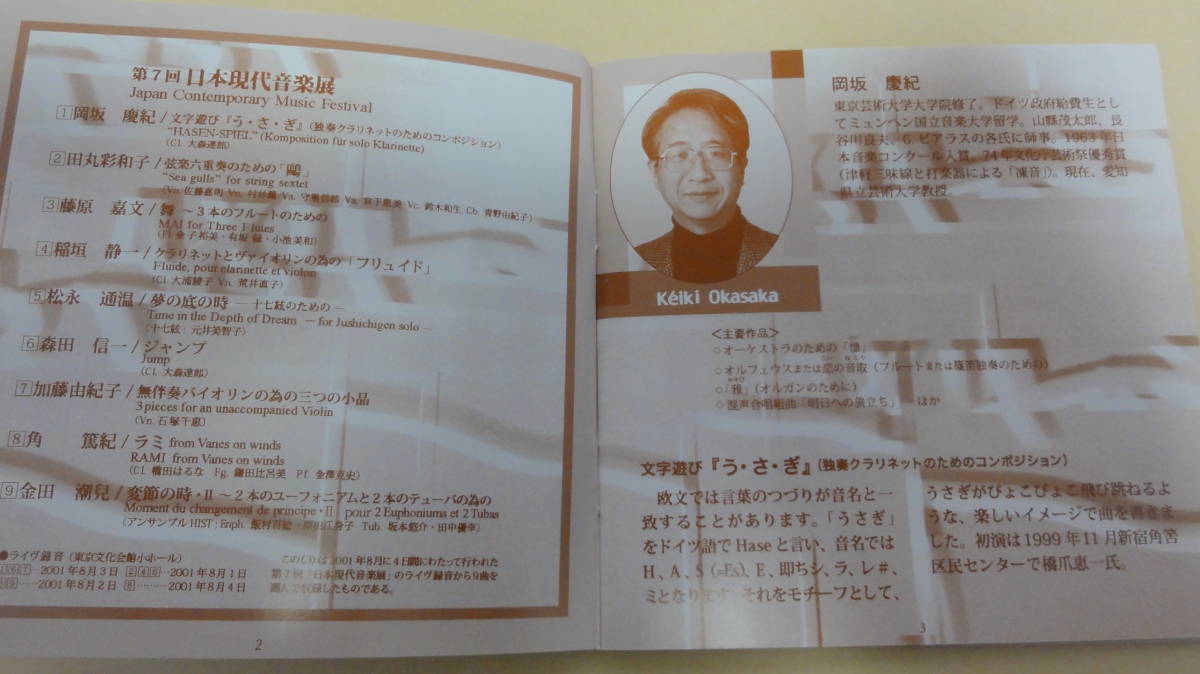 第7回 日本現代音楽展
Japan Contemporary Music Festival
1 岡坂 慶紀/文字遊び『う・さ・ぎ』(独奏クラリネットのためのコンポジション)
"HASEN-SPIEL" (Komposition für solo Klarinette)
(Cl. 大森達郎)
2 田丸彩和子/弦楽六重奏のための「鷗」
"Sea gulls" for string sextet
(Vn. 佐藤嘉明 Vn. 村井薫 Va. 守重信郎 Va. 宮下能美 Vc. 鈴木和生 Cb. 青野由紀子)
3 藤原 嘉文/舞 〜3本のフルートのための
MAI for Three Flutes
(Fl. 金子裕美・有坂 緑・小池美和)
4 稲垣 静一/クラリネットとヴァイオリンの為の「フリュイド」
Fluide, pour clarinette et violon
(Cl. 大浦綾子 Vn. 荒井直子)
5 松永 通温/夢の底の時 ―十七絃のための―
Time in the Depth of Dream ― for Jushichigen solo ―
(十七絃:元井美智子)
6 森田 信一/ジャンプ
Jump
(Cl. 大森達郎)
7 加藤由紀子/無伴奏バイオリンの為の三つの小品
3 pieces for an unaccompanied Violin
(Vn. 石塚千恵)
8 角 篤紀/ラミ from Vanes on winds
RAMI from Vanes on winds
(Cl. 橋田はるな Fg. 鎌田比呂美 Pf. 金澤克史)
9 金田 潮兒/変節の時・II 〜2本のユーフォニアムと2本のテューバの為の
Moment du changement de principe・II pour 2 Euphoniums et 2 Tubas
(アンサンブルHIST:Enph. 飯村百絵・原田江身子 Tub. 坂本悠介・田中優幸)
●ライヴ録音(東京文化会館小ホール)
…2001年8月3日 2 4 6…2001年8月1日
…2001年8月2日 8………2001年8月4日
このCDは2001年8月に4日間にわたって行われた
第7回「日本現代音楽展」のライヴ録音から9曲を
選んで収録したものである。
2
岡坂 慶紀
東京芸術大学大学院修了。ドイツ政府給費生とし
てミュンヘン国立音楽大学留学。山縣茂太郎、長
谷川良夫、G. ビアラスの各氏に師事。1963年日
本音楽コンクール入賞。'74年文化庁芸術祭優秀賞
(津軽三味線と打楽器による「凍音」)。現在、愛知
県立芸術大学教授。
Kéiki Okasaka
<主要作品>
○オーケストラのための「」
○オルフェウスまたは恋の音取(フルートまたは篠笛独奏のための)
○「雅」(オルガンのために)
○混声合唱組曲「明日への旅立ち」 ほか
文字遊び『う・さ・ぎ』(独奏クラリネットのためのコンポジション)
欧文では言葉のつづりが音名と一
致することがあります。「うさぎ」
をドイツ語でHaseと言い、音名では
H、A、S (=Es)、E、即ちシ、ラ、レ#、
ミとなります。それをモチーフとして、
うさぎがぴょこぴょこ飛び跳ねるよ
うな、楽しいイメージで曲を書きま
した。初演は1999年11月新宿角筈
区民センターで橋爪恵一氏。
3